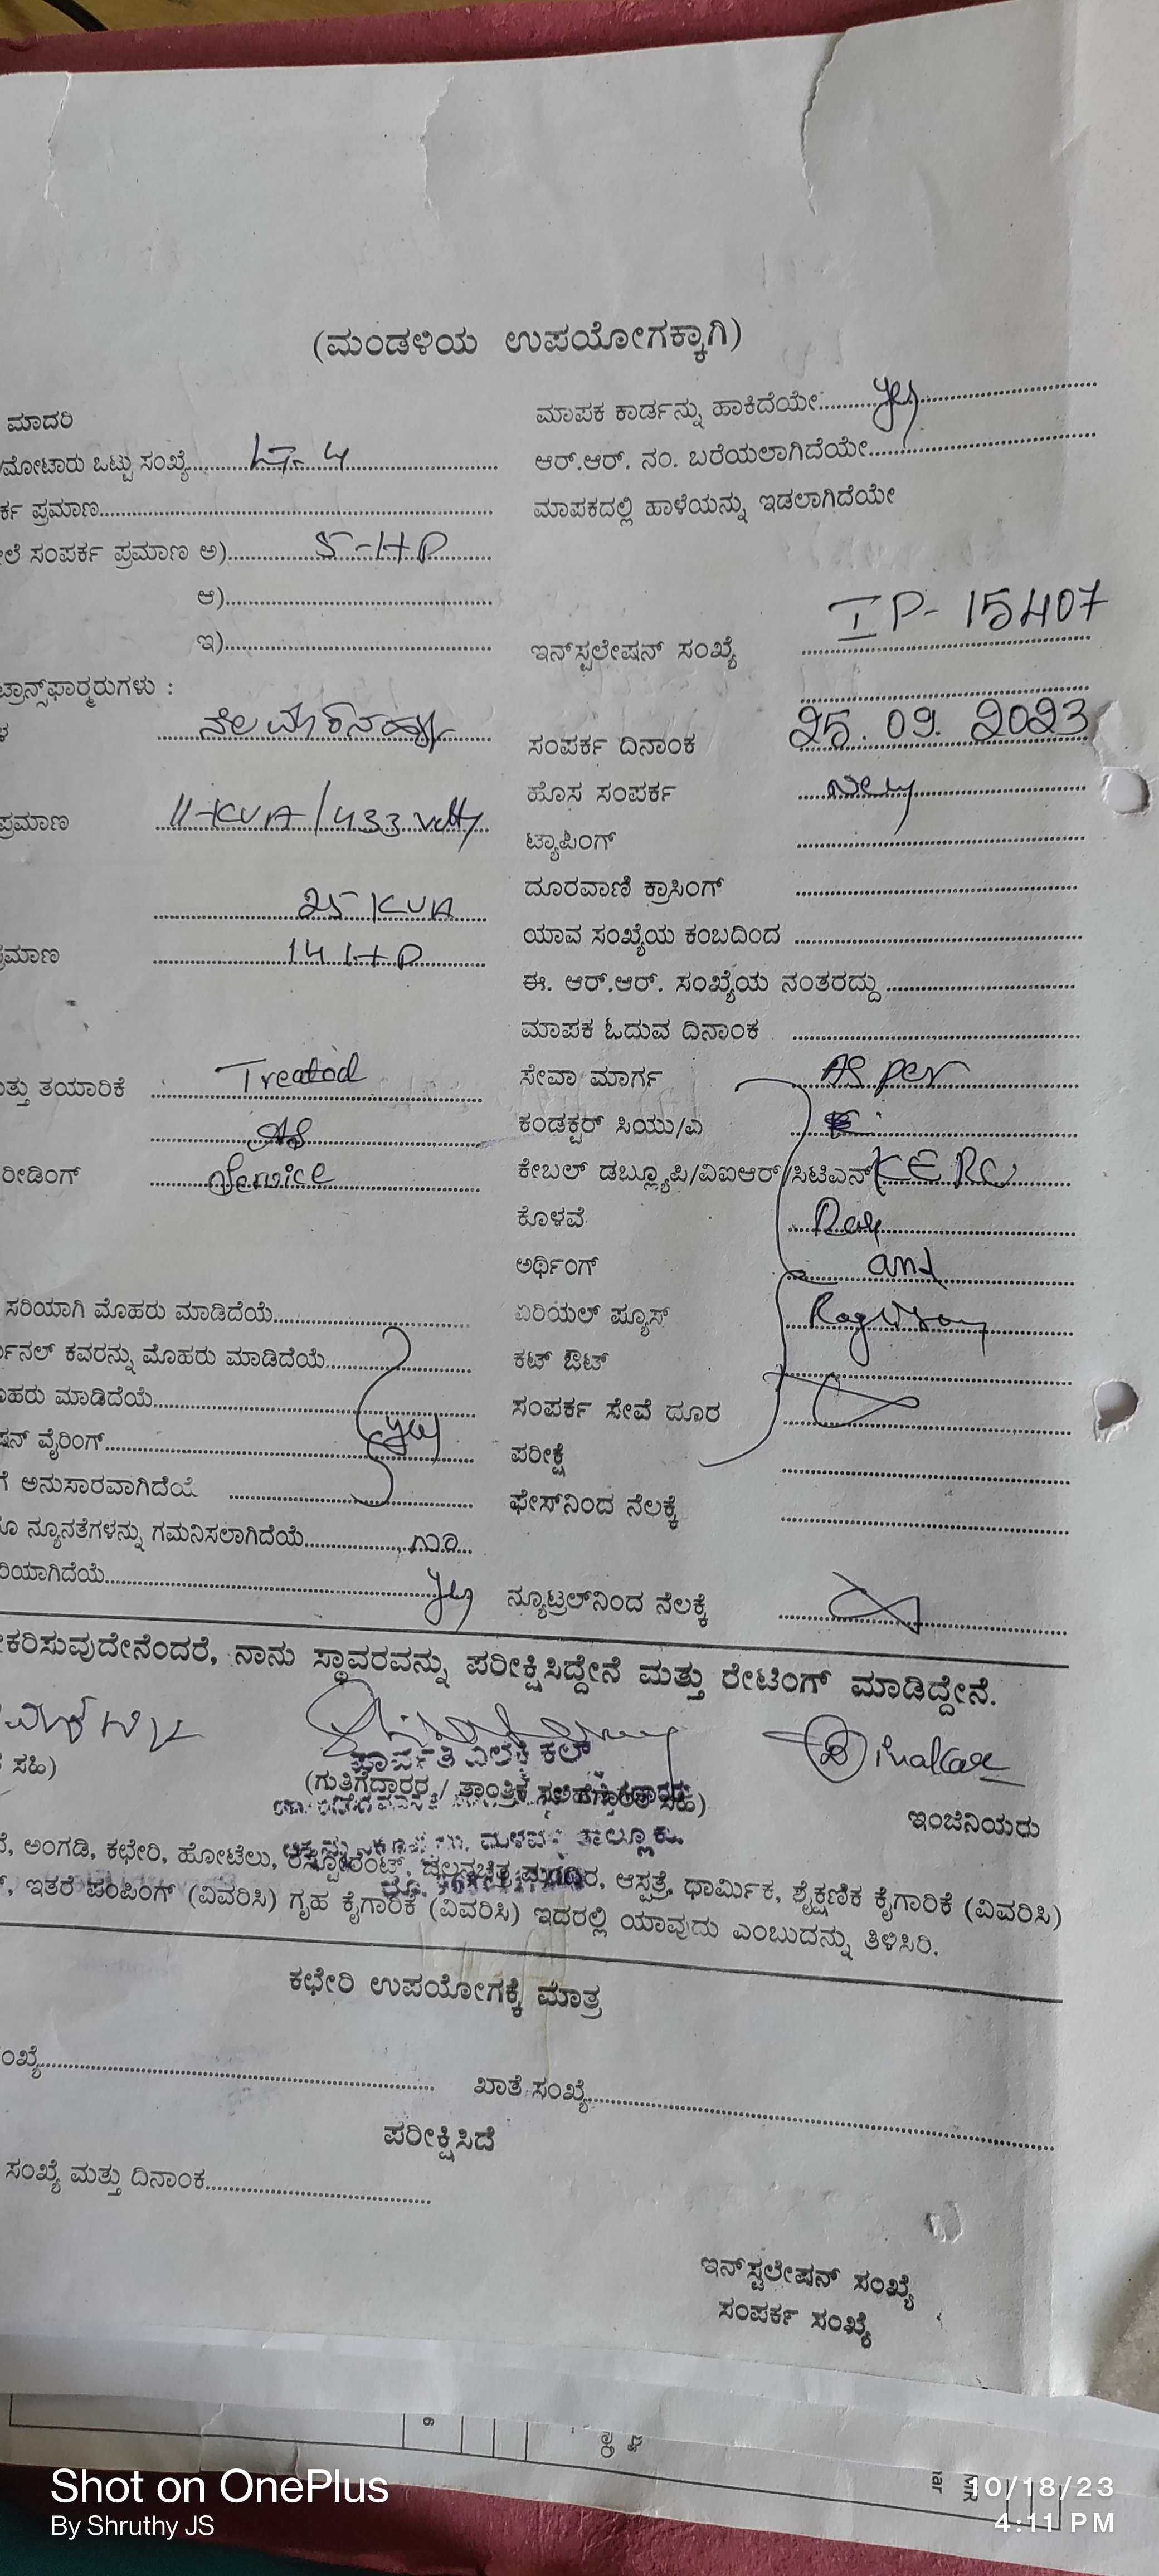 (ಮಂಡಳಿಯ ಉಪಯೋಗಕ್ಕಾಗಿ)
ಮಾದರಿ
/ಮೋಟಾರು ಒಟ್ಟು ಸಂಖ್ಯೆ
ರ್ಕ ಪ್ರಮಾಣ
ಲೆ ಸಂಪರ್ಕ ಪ್ರಮಾಣ ಅ) 5-HP
ಆ)
ಇ)
ಟ್ರಾನ್ಸ್‌ಫಾರ್ಮರುಗಳು :
ಪ್ರಮಾಣ 11-KVA/433 volts
25 KVA
ಪ್ರಮಾಣ 14 HP
ತ್ತು ತಯಾರಿಕೆ Treated
as
ರೀಡಿಂಗ್ Service
ಸರಿಯಾಗಿ ಮೊಹರು ಮಾಡಿದೆಯೆ
ರ್ಮಿನಲ್ ಕವರನ್ನು ಮೊಹರು ಮಾಡಿದೆಯೆ
ಮೊಹರು ಮಾಡಿದೆಯೆ
ಷನ್ ವೈರಿಂಗ್ yes
ಗೆ ಅನುಸಾರವಾಗಿದೆಯೆ
ನ್ಯೂನತೆಗಳನ್ನು ಗಮನಿಸಲಾಗಿದೆಯೆ no
ರಿಯಾಗಿದೆಯೆ yes
ಮಾಪಕ ಕಾರ್ಡನ್ನು ಹಾಕಿದೆಯೇ yes
ಆರ್.ಆರ್. ನಂ. ಬರೆಯಲಾಗಿದೆಯೇ
ಮಾಪಕದಲ್ಲಿ ಹಾಳೆಯನ್ನು ಇಡಲಾಗಿದೆಯೇ
ಇನ್‌ಸ್ಟಲೇಷನ್ ಸಂಖ್ಯೆ IP-15407
ಸಂಪರ್ಕ ದಿನಾಂಕ 25.09.2023
ಹೊಸ ಸಂಪರ್ಕ
ಟ್ಯಾಪಿಂಗ್
ದೂರವಾಣಿ ಕ್ರಾಸಿಂಗ್
ಯಾವ ಸಂಖ್ಯೆಯ ಕಂಬದಿಂದ
ಈ. ಆರ್.ಆರ್. ಸಂಖ್ಯೆಯ ನಂತರದ್ದು
ಮಾಪಕ ಓದುವ ದಿನಾಂಕ
ಸೇವಾ ಮಾರ್ಗ As per
ಕಂಡಕ್ಟರ್ ಸಿಯು/ಎ
ಕೇಬಲ್ ಡಬ್ಲ್ಯೂಪಿ/ವಿಐಆರ್/ಸಿಟಿಎನ್ KERC
ಕೊಳವೆ
ಅರ್ಥಿಂಗ್ and
ಏರಿಯಲ್ ಪ್ಯೂಸ್
ಕಟ್ ಔಟ್
ಸಂಪರ್ಕ ಸೇವೆ ದೂರ
ಪರೀಕ್ಷೆ
ಫೇಸ್‌ನಿಂದ ನೆಲಕ್ಕೆ
ನ್ಯೂಟ್ರಲ್‌ನಿಂದ ನೆಲಕ್ಕೆ
ಕರಿಸುವುದೇನೆಂದರೆ, ನಾನು ಸ್ಥಾವರವನ್ನು ಪರೀಕ್ಷಿಸಿದ್ದೇನೆ ಮತ್ತು ರೇಟಿಂಗ್ ಮಾಡಿದ್ದೇನೆ.
ಸಹಿ)
(ಗುತ್ತಿಗೆದಾರರ / ತಾಂತ್ರಿಕ ಸಹಿ)
ಇಂಜಿನಿಯರು
ಅಂಗಡಿ, ಕಛೇರಿ, ಹೋಟೆಲು, ರೆಸ್ಟೋರೆಂಟ್, ಚಲನಚಿತ್ರ ಮಂದಿರ, ಆಸ್ಪತ್ರೆ, ಧಾರ್ಮಿಕ, ಶೈಕ್ಷಣಿಕ ಕೈಗಾರಿಕೆ (ವಿವರಿಸಿ)
ಇತರೆ ಪಂಪಿಂಗ್ (ವಿವರಿಸಿ) ಗೃಹ ಕೈಗಾರಿಕೆ (ವಿವರಿಸಿ) ಇದರಲ್ಲಿ ಯಾವುದು ಎಂಬುದನ್ನು ತಿಳಿಸಿರಿ.
ಕಛೇರಿ ಉಪಯೋಗಕ್ಕೆ ಮಾತ್ರ
ಂಖ್ಯೆ
ಖಾತೆ ಸಂಖ್ಯೆ
ಪರೀಕ್ಷಿಸಿದೆ
ಸಂಖ್ಯೆ ಮತ್ತು ದಿನಾಂಕ
ಇನ್‌ಸ್ಟಲೇಷನ್ ಸಂಖ್ಯೆ
ಸಂಪರ್ಕ ಸಂಖ್ಯೆ
Shot on OnePlus
By Shruthy JS
10/18/23
4:11 PM